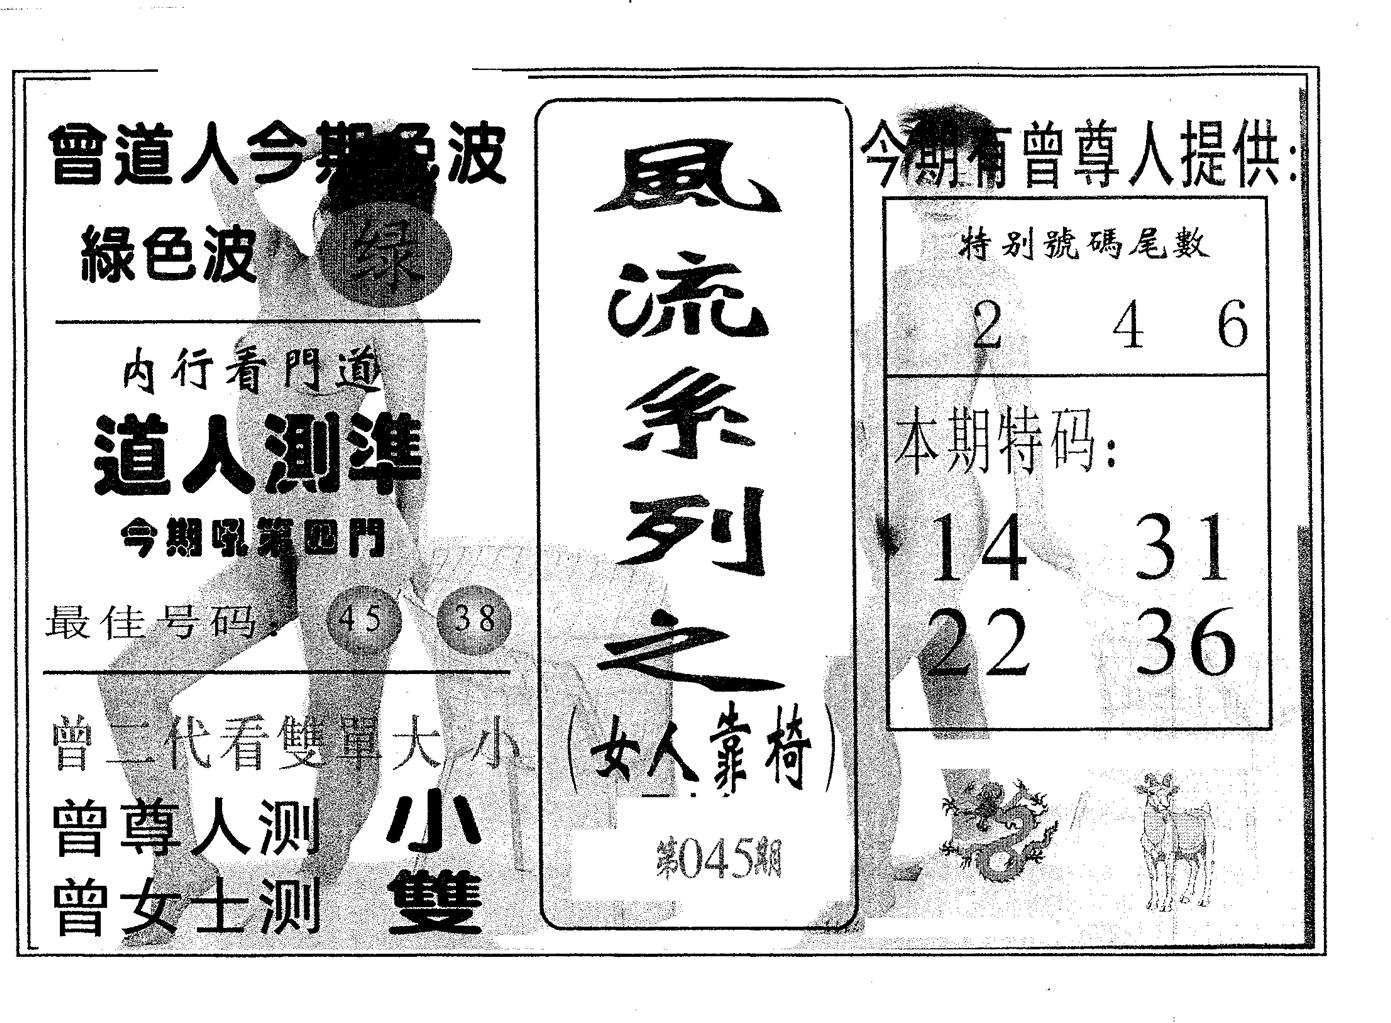 曾道人今期色波
綠色波 绿
内行看門道
道人測準
今期吼第四門
最佳号码: 45 38
曾二代看雙單大小
曾尊人测 小
曾女士测 雙
風流系列之
(女人靠椅)
第045期
今期有曾尊人提供:
特别號碼尾數
2 4 6
本期特码:
14 31
22 36